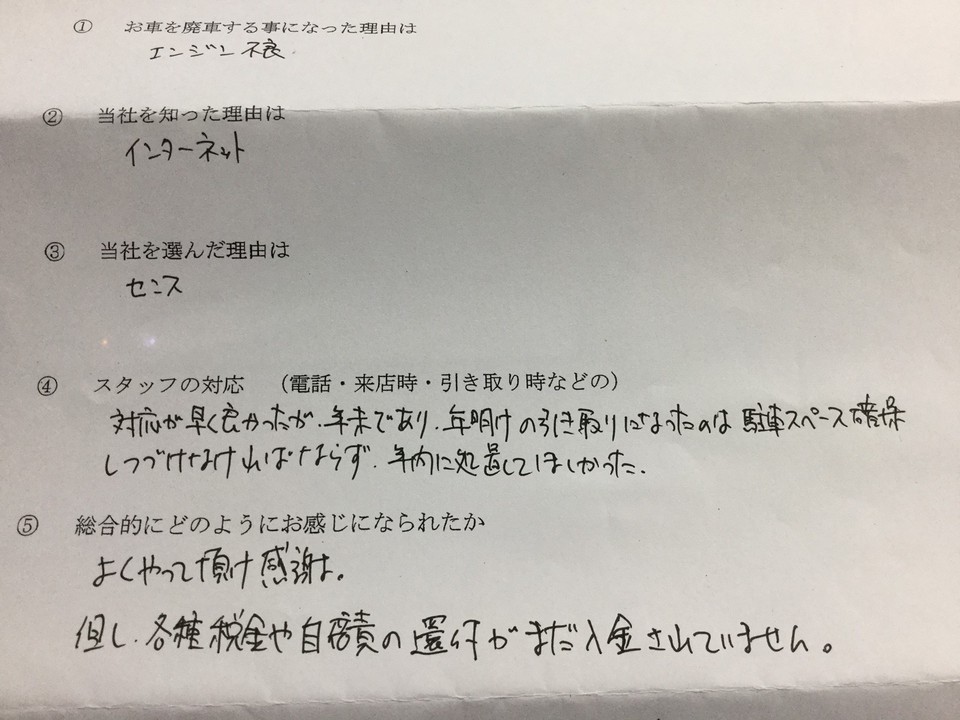 ① お車を廃車する事になった理由は
エンジン不良
② 当社を知った理由は
インターネット
③ 当社を選んだ理由は
センス
④ スタッフの対応 （電話・来店時・引き取り時などの）
対応が早く良かったが、年末であり、年明けの引き取りになったのは駐車スペース確保
しつづけなければならず、年内に処置してほしかった。
⑤ 総合的にどのようにお感じになられたか
よくやって頂け感謝。
但し、各種税金や自賠責の還付がまだ入金されていません。